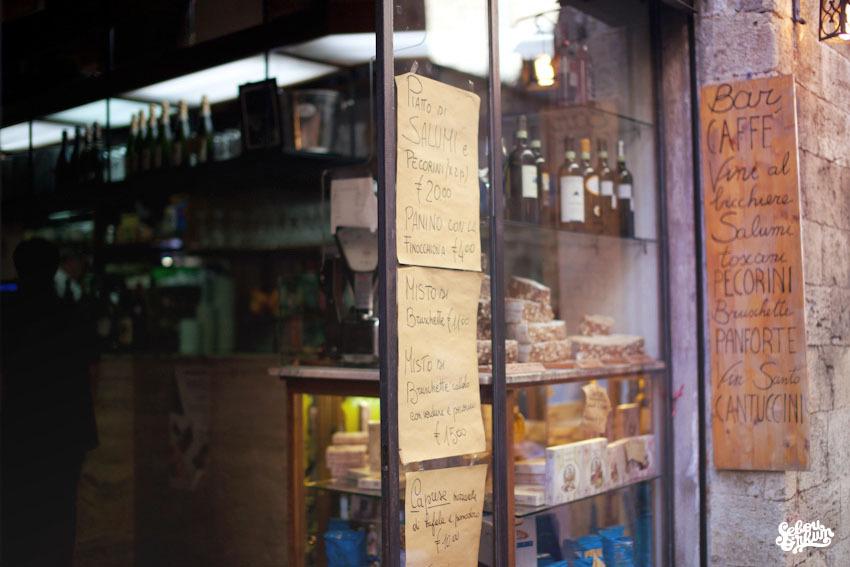 PIATTO DI
SALUMI e
PECORINI (x2p)
€ 20,00
PANINO CON LA
FINOCCHIONA € 4,00
MISTO DI
Bruschette € 11,00
MISTO DI
Bruschette caldo
con verdure e pecorino
€ 15,00
CAPRESE mozzarella
di bufala e pomodoro
€ 10,00
Bar
CAFFE
Vini al
bicchiere
Salumi
toscani
PECORINI
Bruschette
PANFORTE
Vin Santo
CANTUCCINI